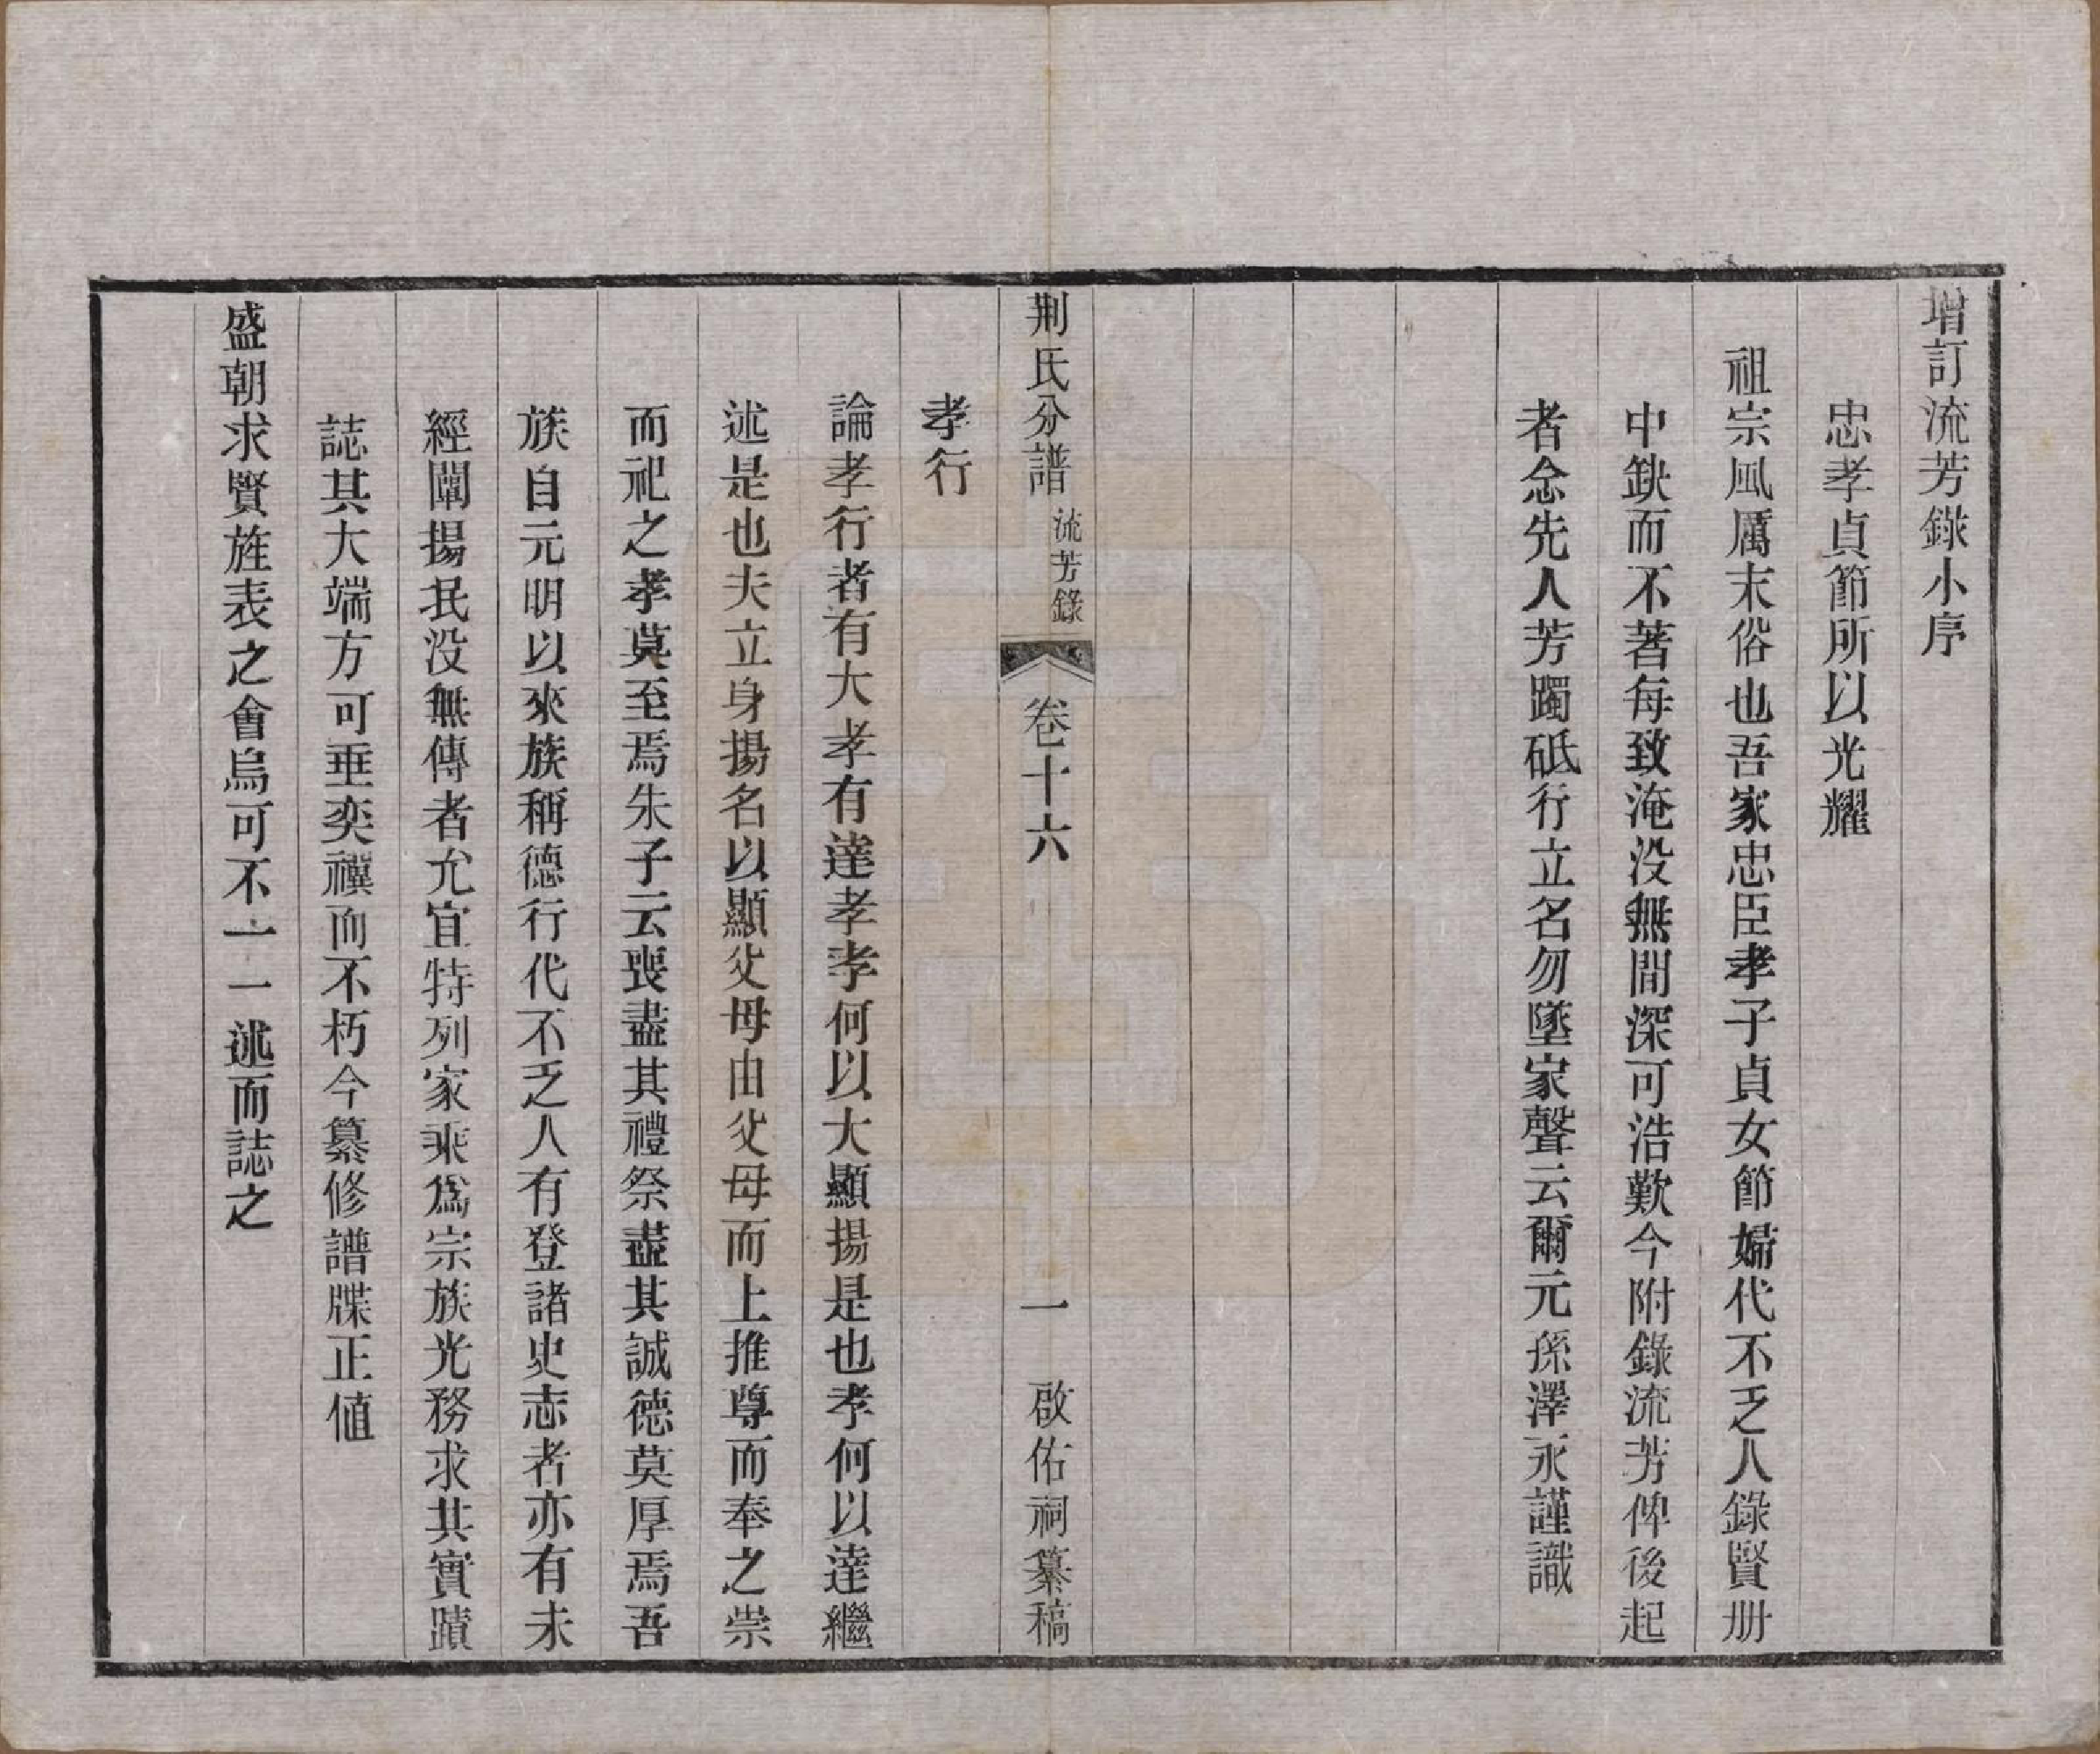 增訂流芳錄小序
忠孝貞節所以光耀
祖宗風厲末俗也吾家忠臣孝子貞女節婦代不乏人錄賢册
中缺而不著每致淹没無聞深可浩歎今附錄流芳俾後起
者念先人芳躅砥行立名勿墜家聲云爾元孫澤永謹識
荆氏分譜 流芳錄 卷十六 一 啟佑祠纂稿
孝行
論孝行者有大孝有達孝孝何以大顯揚是也孝何以達繼
述是也夫立身揚名以顯父母由父母而上推尊而奉之崇
而祀之孝莫至焉朱子云喪盡其禮祭盡其誠德莫厚焉吾
族自元明以來族稱德行代不乏人有登諸史志者亦有未
經闡揚泯没無傳者尤宜特列家乘爲宗族光務求其實蹟
誌其大端方可垂奕禩而不朽今纂修譜牒正值
盛朝求賢旌表之會烏可不一一述而誌之